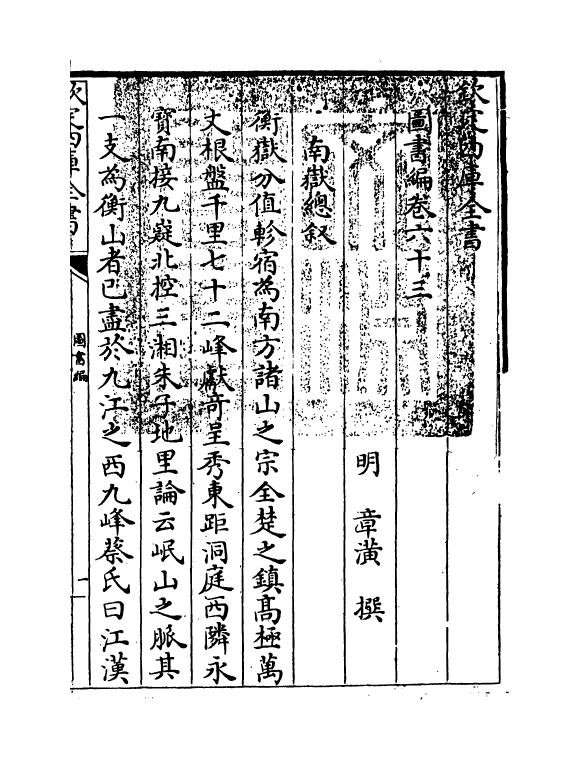 欽定四庫全書
圖書編卷六十三
明 章潢 撰
南嶽總叙
衡嶽分值軫宿為南方諸山之宗全楚之鎮髙極萬
丈根盤千里七十二峰獻竒呈秀東距洞庭西隣永
寳南接九疑北控三湘朱子地里論云岷山之脈其
一支為衡山者已盡於九江之西九峰蔡氏曰江漢
欽定四庫全書
圖書編
一